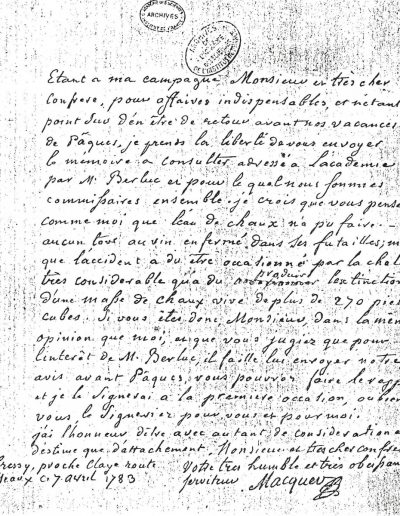 ARCHIVES
Etant a ma campagne Monsieur et très cher
confrere, pour affaires indispensables, et n'etant
point sur d'en être de retour avant nos vacances
de Pâques, je prends la liberté de vous envoyer
le mémoire a consulter adressé a l'académie
par Mr. Berluc et pour le quel nous sommes
commissaires ensemble. je crois que vous pense
comme moi que l'eau de chaux n'a pu faire
aucun tort au vin enfermé dans ses futailles; m
que l'accident a du etre occasionné par la chal
très considerable qu'a du produire l'extinction
d'une masse de chaux vive de plus de 270 pie
cubes. Si vous êtes donc, Monsieur, dans la mem
opinion que moi, et que vous jugiez que pour
l'interêt de M. Berluc, il faille lui envoyer notre
avis avant Pâques, vous pouvez faire le rapp
et je le signerai a la première occasion, ou bien
vous le signeriez pour vous et pour moi.
j'ai l'honneur d'être avec autant de consideration e
d'estime que d'attachement, Monsieur et tres cher confre
Gressy, proche Claye route Votre très humble et très obeissan
Meaux ce 7 avril 1783 serviteur Macquer